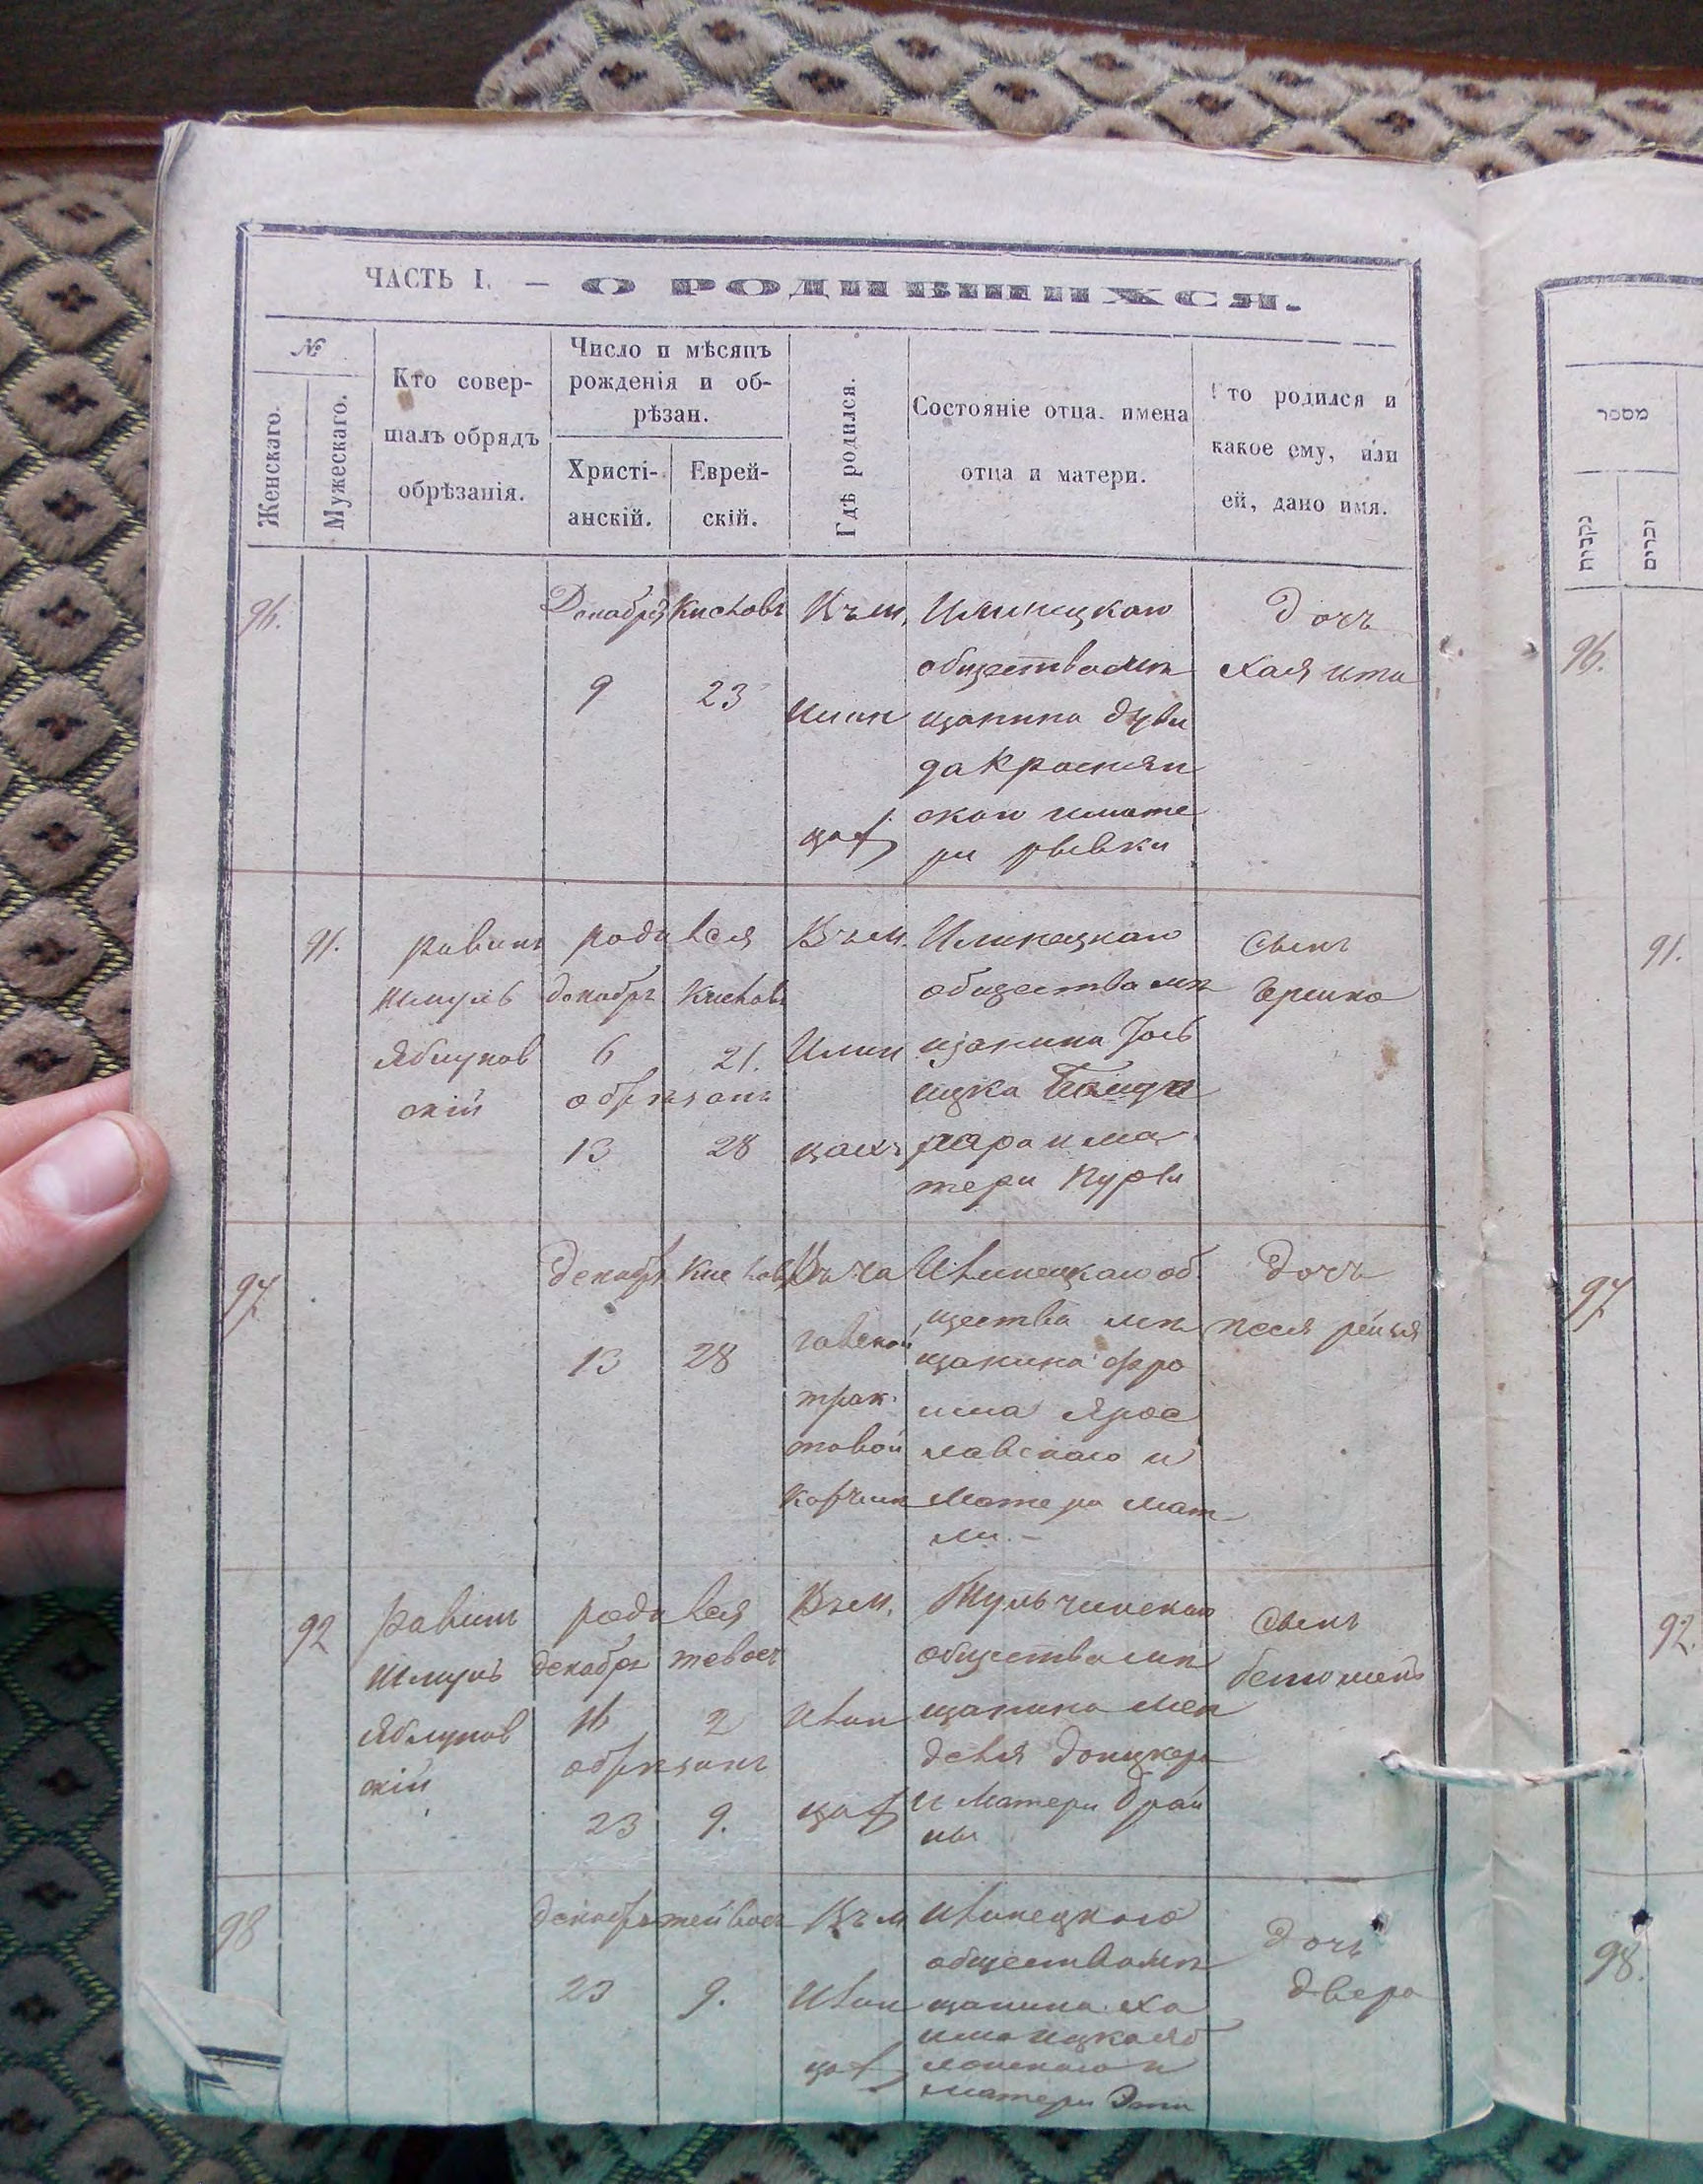 ЧАСТЬ I. — О РОДИВШИХСЯ.
№
Женскаго.
Мужескаго.
Кто совер-
шалъ обрядъ
обрѣзанія.
Число и мѣсяцъ
рожденія и об-
рѣзан.
Христі-
анскій.
Еврей-
скій.
Гдѣ родился.
Состояніе отца. имена
отца и матери.
то родился и
какое ему, или
ей, дано имя.
96.
Декабря
9
Кисловъ
23
Въ м.
Илин
цахъ
Илинецкаго
общества мѣ
щанина Дуви
да Краснян
скаго и мате
ри рывки
Дочь
Хая ита
91.
равинъ
Шмуль
Яблунов
скій
родился
декабръ Кисловъ
6 21.
обрѣзанъ
13 28
Въ м.
Илин
цахъ
Илинецкаго
общества мѣ
щанина Іось
ицка
и ма
тери Пурли
Сынъ
Ершко
97
декабръ
13
Кисловъ
28
трак
товой
Корчмѣ
Илинецкаго об
щества мѣ
щанина Фро
има Ярос
лавскаго и
Матери мат
ли. —
дочь
песя рейзя
92
равинъ
Шмуль
Яблунов
скій
родился
декабръ тевесъ
16 2
обрѣзанъ
23 9.
Въ м.
Илин
цахъ
Тульчинскаго
общества мѣ
щанина Мен
деля
и Матери Брай
ны
Сынъ
98
декабръ
23
тейвесъ
9.
Въ м
Илин
цахъ
Илинецкаго
общества мѣ
щанина Ха
има ицка Яб
лонскаго и
матери Эти
дочь
двера
מספר
נקבות
זכרים
96.
91.
97
92.
98.